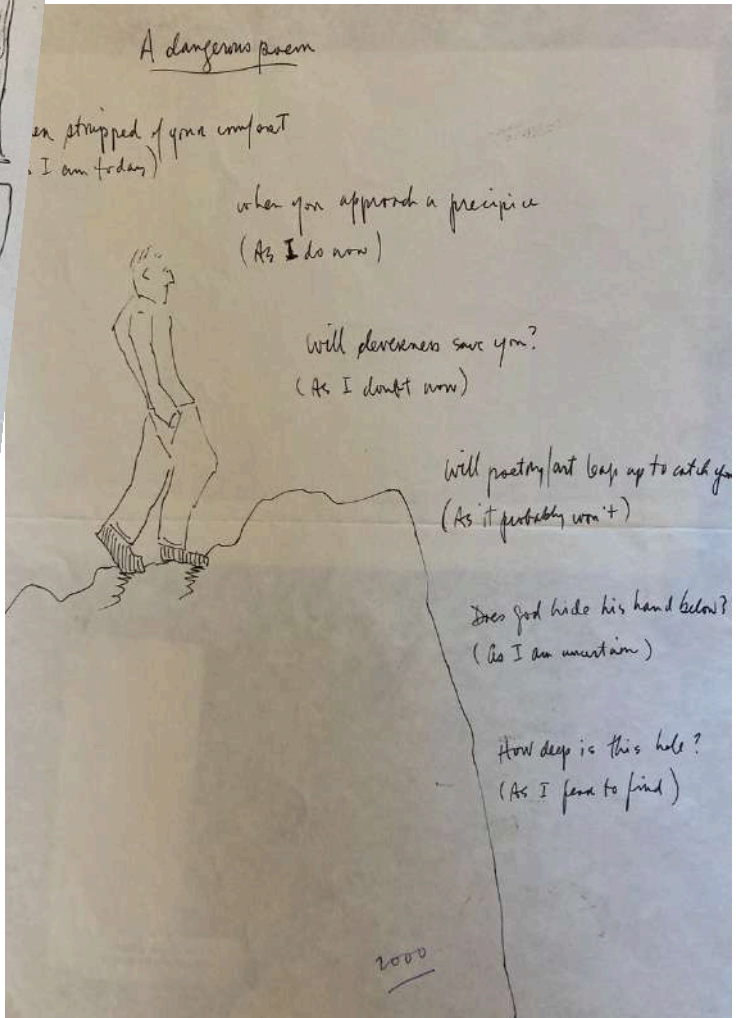 A dangerous poem
en stripped of your comfort
I am today)
when you approach a precipice
(As I do now)
Will cleverness save you?
(As I doubt now)
Will poetry/art leap up to catch you
(As it probably won't)
Does god hide his hand below?
(as I am uncertain)
How deep is this hole?
(As I fear to find)
2000